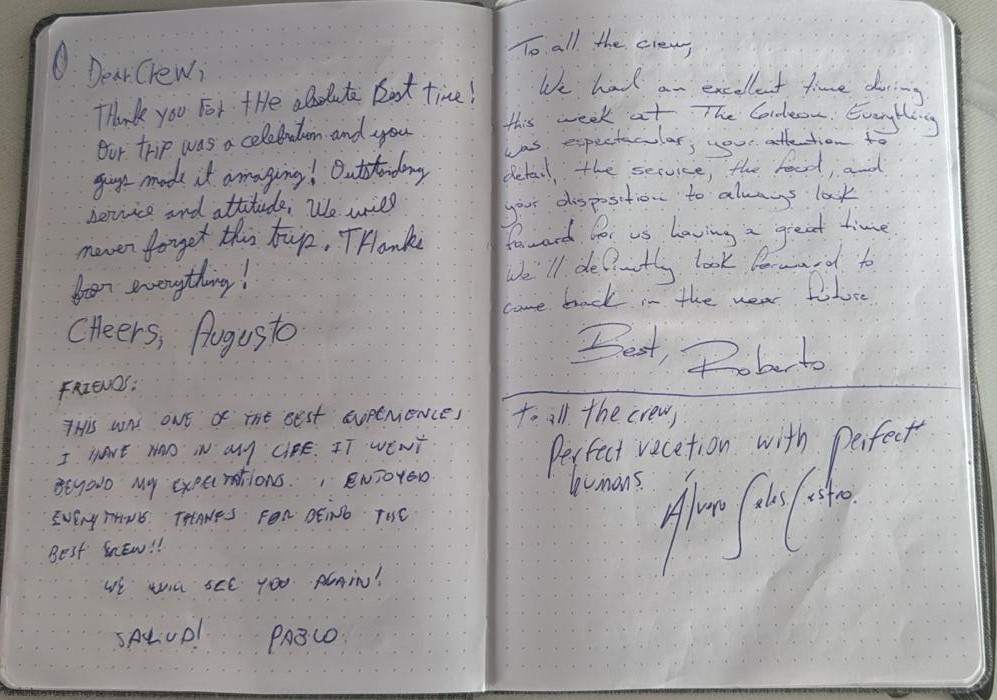 Dear Crew,
THank you For tHe absolute Best time!
Our trip was a celebration and you
guys made it amazing! Outstanding
service and attitude. We will
never forget this trip. THanks
for everything!
CHeers, Augusto
FRIENDS:
THIS WAS ONE OF THE BEST EXPERIENCES
I HAVE HAD IN MY LIFE. IT WENT
BEYOND MY EXPECTATIONS. I ENJOYED
EVERYTHING. THANKS FOR BEING THE
BEST CREW!!
WE WILL SEE YOU AGAIN!
SALUD! PABLO
To all the crew,
We had an excellent time during
this week at The Everything
was espectacular, your attention to
detail, the service, the food, and
your disposition to always look
forward for us having a great time.
We'll definitly look forward to
come back in the near future.
Best, Roberto
To all the crew,
Perfect vacation with perfect
humans.
Álvaro Castro.